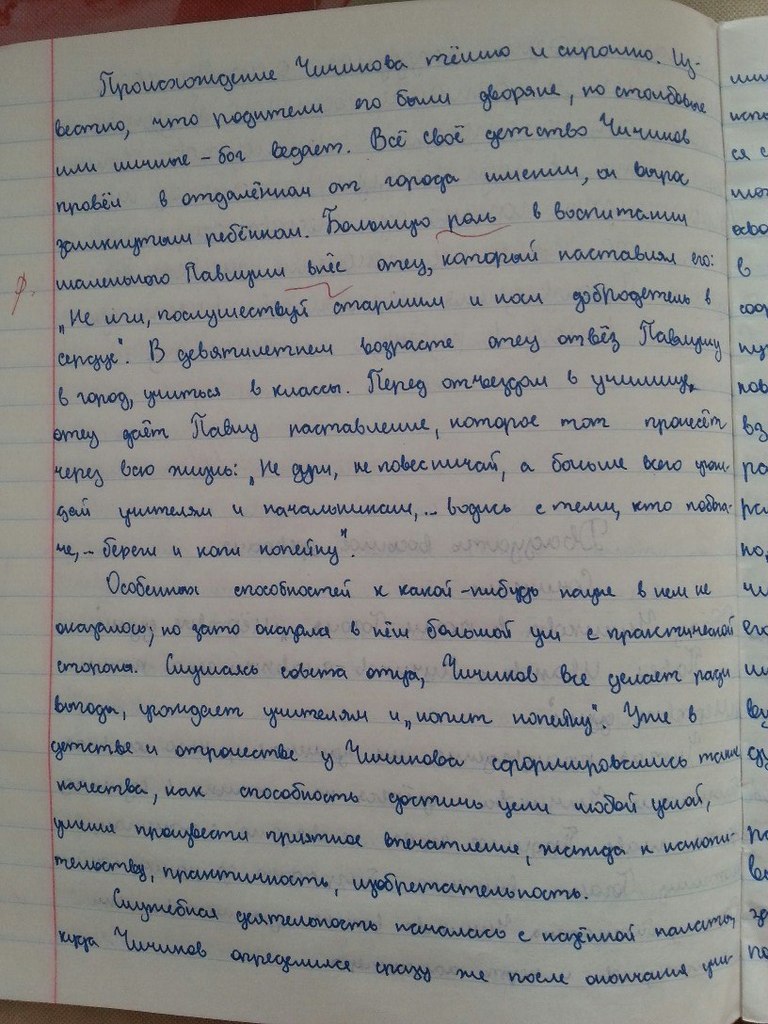 Происхождение Чичикова тёмно и скромно. Из-
вестно, что родители его были дворяне, но столбовые
или личные - бог ведает. Всё своё детство Чичиков
провёл в отдалённом от города имении, он вырос
замкнутым ребёнком. Большую роль в воспитании
маленького Павлуши внёс отец, который наставлял его:
р.
„Не лги, послушествуй старшим и носи добродетель в
сердце". В девятилетнем возрасте отец отвёз Павлушу
в город, учиться в классы. Перед отъездом в училище,
отец даёт Павлу наставление, которое тот пронесёт
через всю жизнь: „Не дури, не повесничай, а больше всего угож-
дай учителям и начальникам,... водись с теми, кто побога-
че,... береги и копи копейку".
Особенных способностей к какой-нибудь науке в нем не
оказалось; но зато оказался в нём большой ум с практической
стороны. Слушаясь совета отца, Чичиков все делает ради
выгоды, угождает учителям и „копит копейку". Уже в
детстве и отрочестве у Чичикова сформировались такие
качества, как способность достичь цели любой ценой,
умение произвести приятное впечатление, жажда к накопи-
тельству, практичность, изобретательность.
Служебная деятельность началась с казённой палаты,
куда Чичиков определился сразу же после окончания учи-